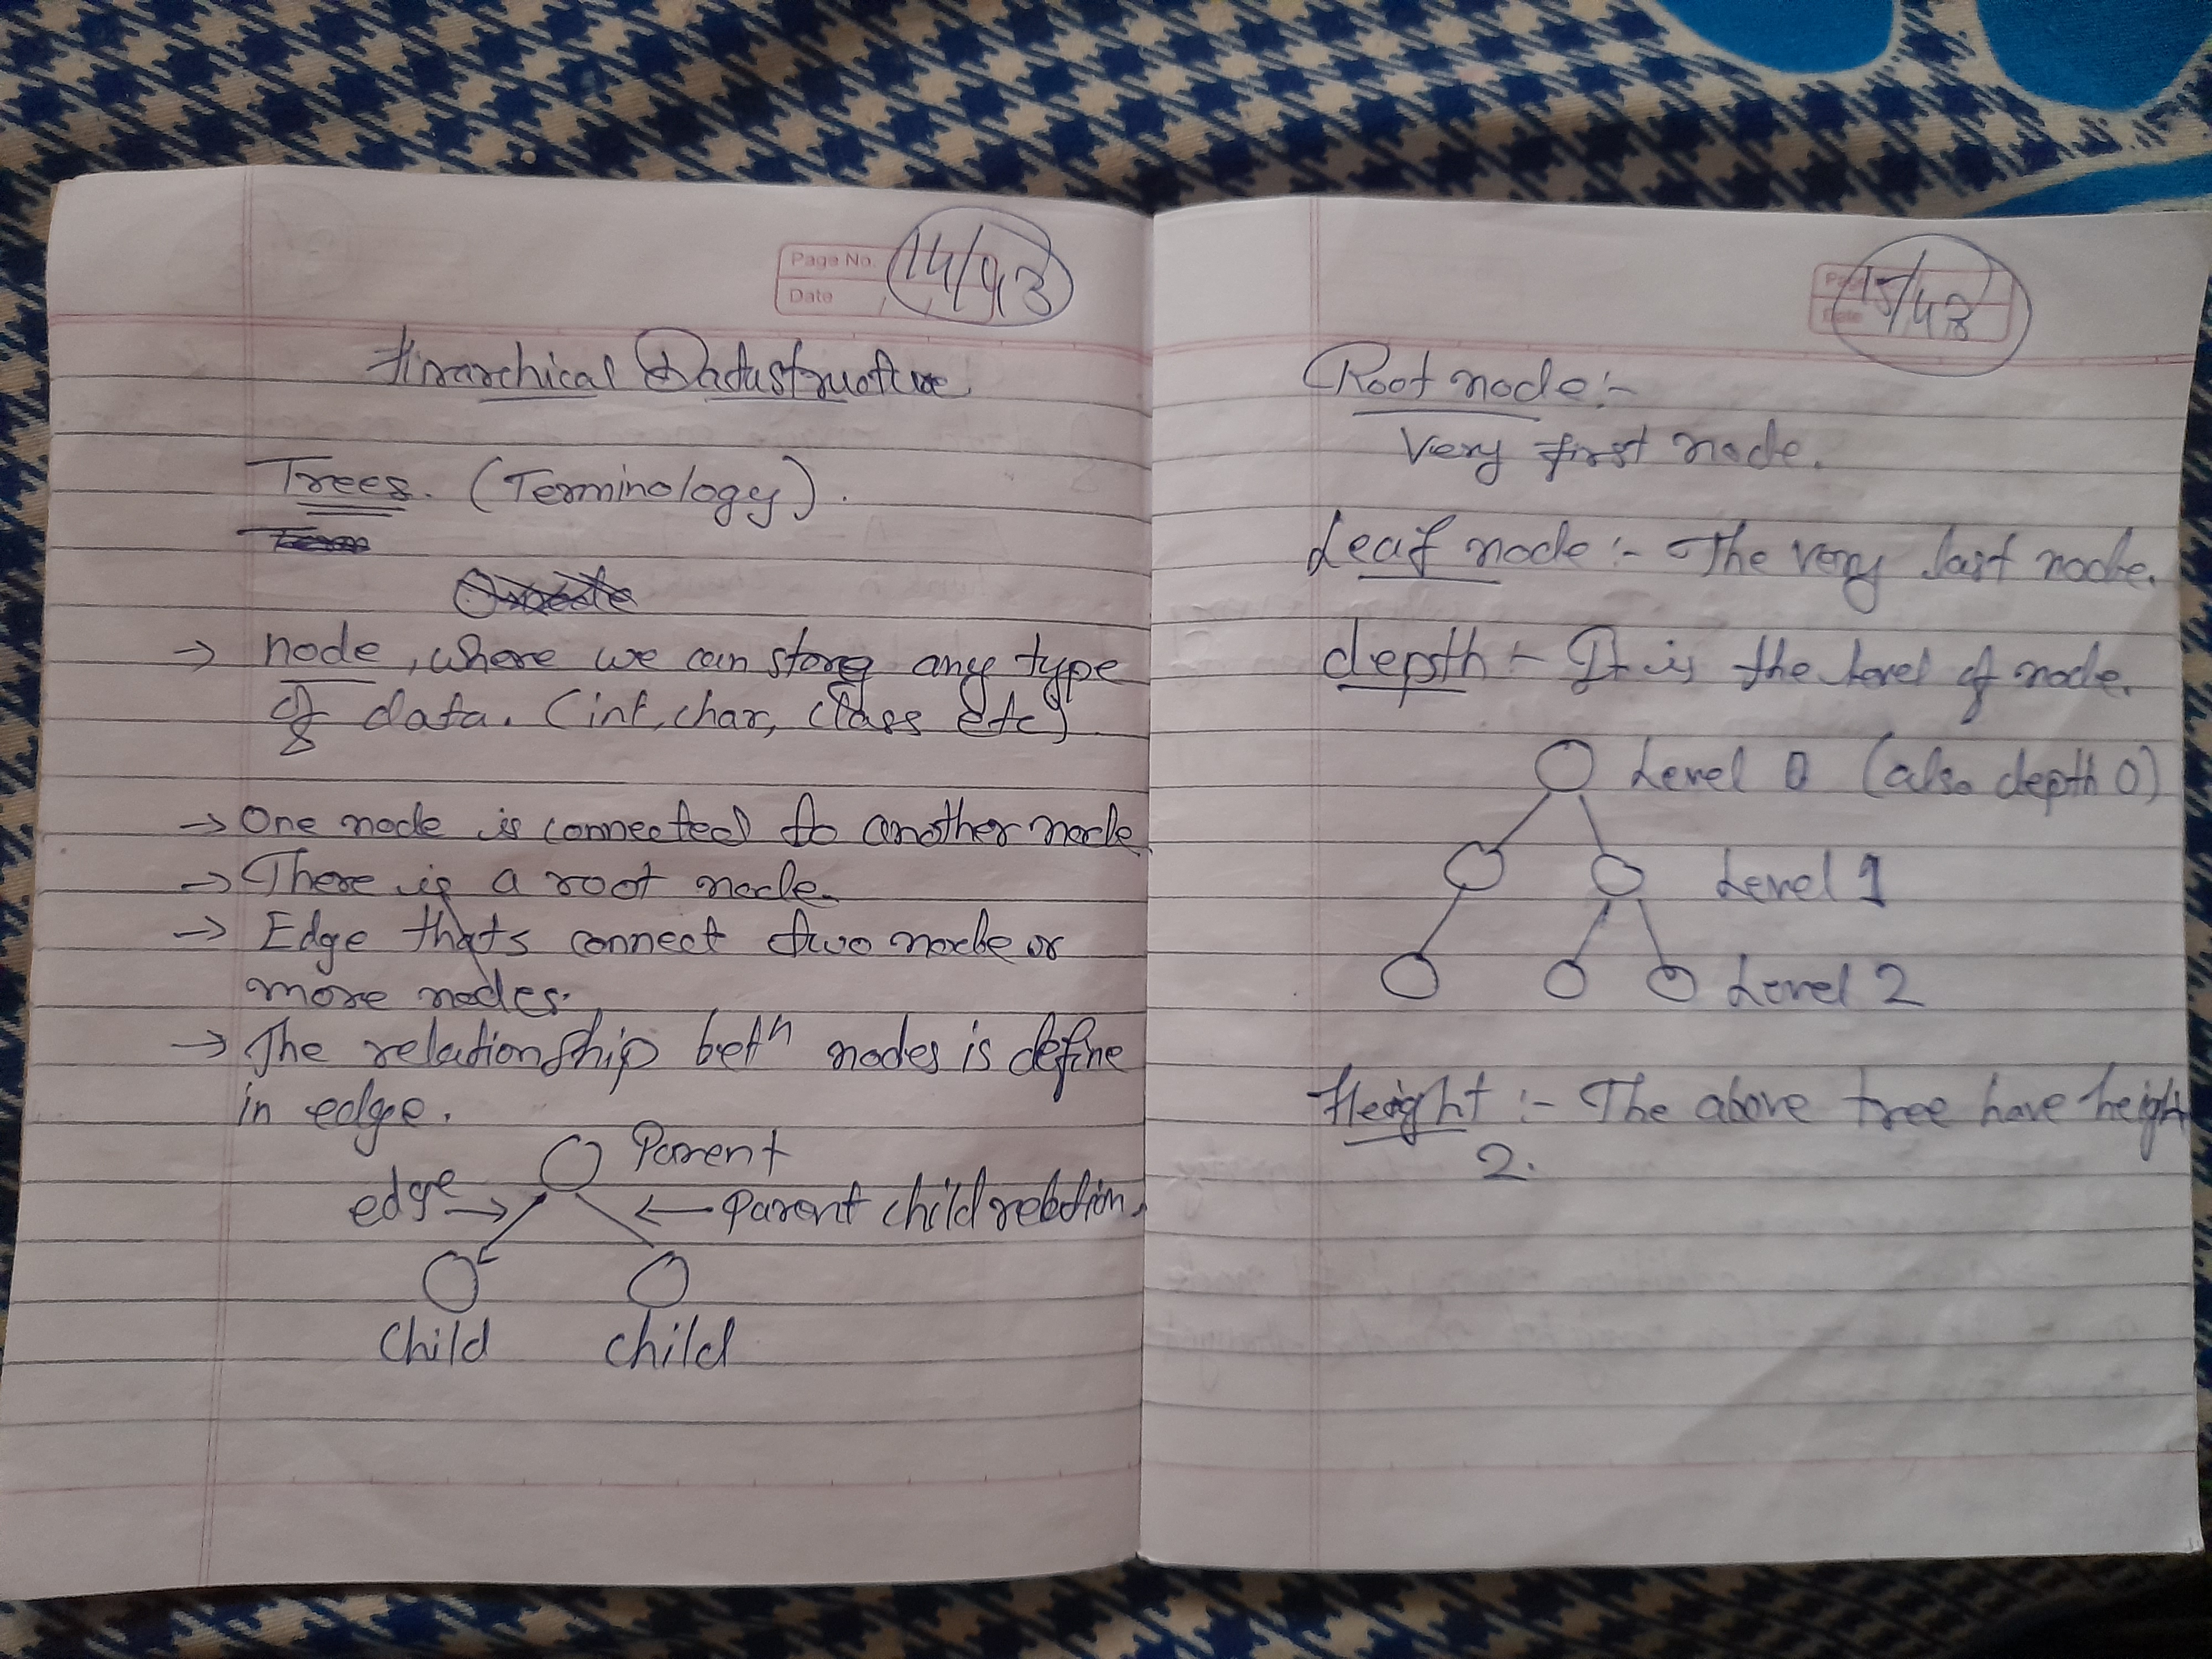 Page No.
Date
14/43
Hirarchical Datastructure
Trees. (Terminology).
→ node, where we can store any type
of data. (int, char, class etc)
→ One node is connected to another node
→ There is a root node.
→ Edge thats connect two node or
more nodes.
→ The relationship betn nodes is define
in edge.
Parent
edge →
← Parent child relation.
Child
child
15/43
Root node :-
Very first node.
Leaf node :- The very last node.
depth :- It is the level of node.
Level 0 (also depth 0)
Level 1
Level 2
Height :- The above tree have heigh
2.